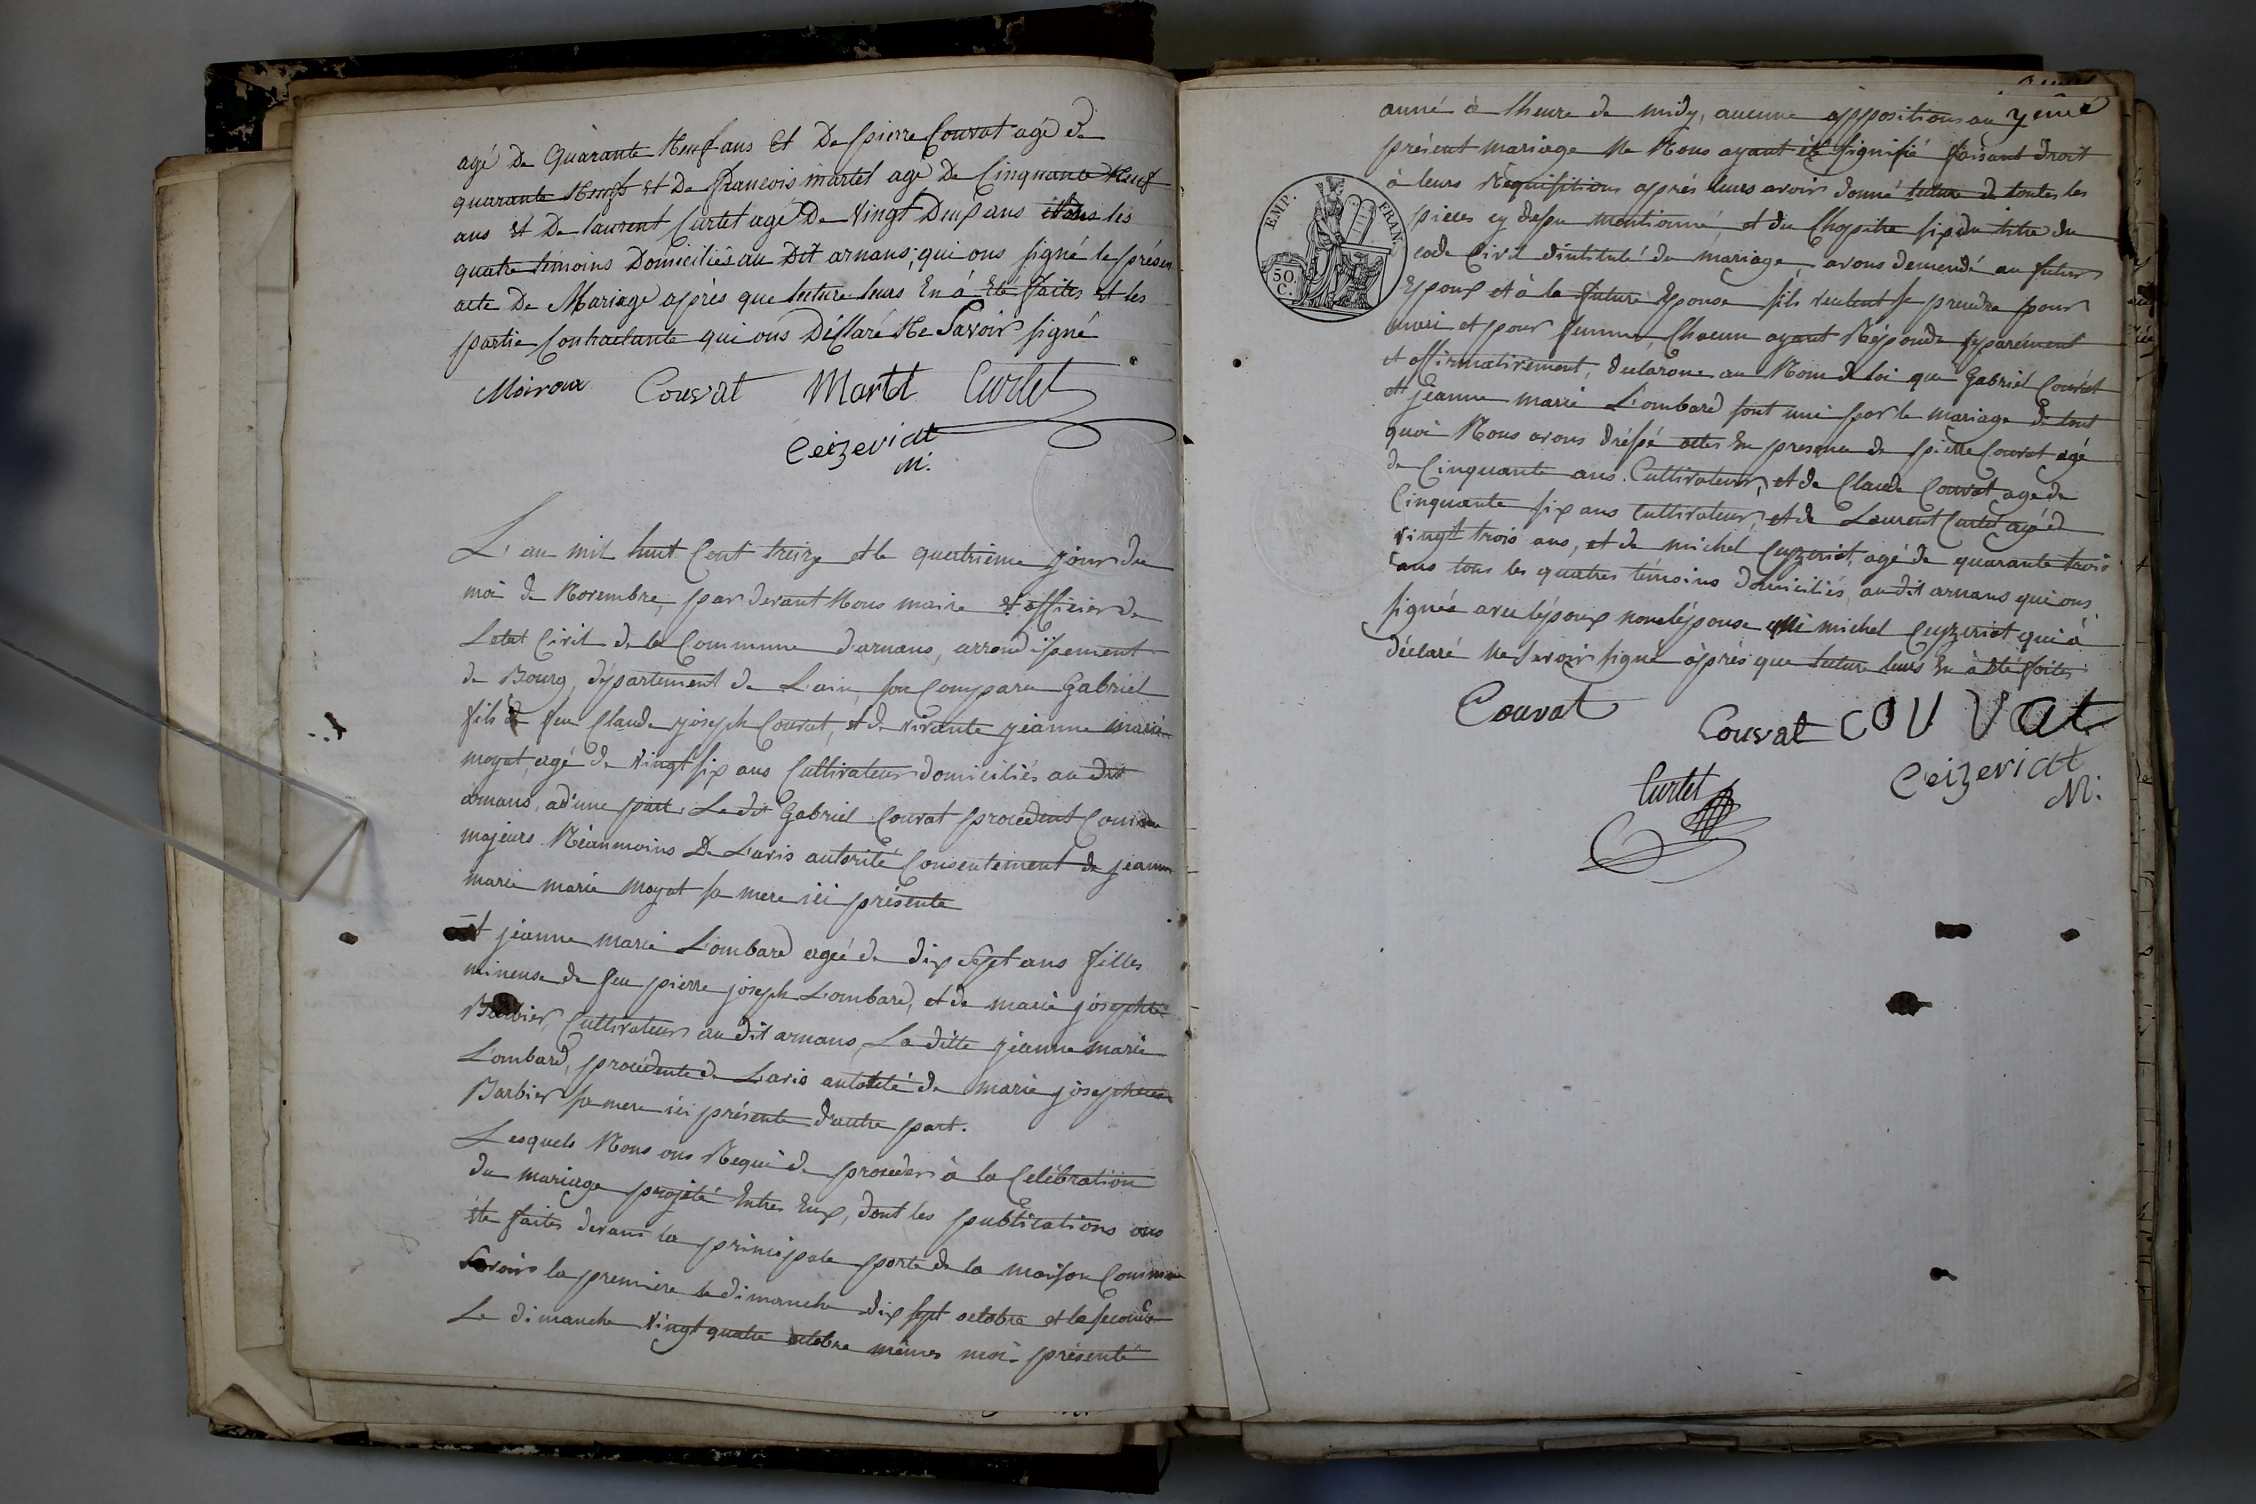 agé de quarante Neuf ans et de pierre Couvat agé de
quarante Neuf et de francois martel agé de Cinquante Neuf
ans et de laurent Curlet agé de vingt Deux ans les
quatre témoins Domiciliés au Dit arnans, qui ons signé le présen
acte De Mariage après que lecture leurs En á Eté faites et les
partie Contractante qui ons Déclaré Ne Savoir signé
Moiroux Couvat Martel Curlet
Ceizeriat
M.
L'an mil huit Cent treize et le quatrieme jour du
moi de Novembre, par devant Nous maire et officier de
Letat Civil de la Commune darnans, arrondissement
de Bourg, département de L'ain, son Comparu Gabriel
fils de feu Claude joseph Couvat, et de vivante jeanne marie
moyat, agé de vingt six ans Cultivateur domiciliés au dit
arnans, ad'une part, Le dit Gabriel Couvat procédent Comme
majeurs Néanmoins De L'avis autorité Consentement de jeanne
marie marie moyat sa mere ici présente
Et jeanne marie L'ombard agée de dix Sept ans filles
mineuse de feu pierre joseph L'ombard, et de marie josephte
Barbier, Cultivateur au dit arnans, La ditte jeanne marie
L'ombard, procédente de L'avis autorité de marie josephte
Barbier sa mere ici présente d'autre part.
Lesquels Nous ons Requi de proceder à la Célébration
du mariage projété Entres Eux, dont les publications ons
été faites devant la principale porte de la maison Commune
Savoir la première le dimanche dix sept octobre et la seconde
Le dimanche vingt quatre octobre mêmes moi présente
anné à lheure de midy, aucune oppositions au
présent mariage Ne Nous ayant été signifié faisant droit
à leurs Réquisitions après leurs avoir donné lecture de toutes les
pieces cy dessu mentionné et du Chapitre six du titre du
code Civil d'intitulé du mariage, avons demendé au futur
Epoux et à la future Epouse sils veulent se prendre pour
mari et pour femme, Chacun ayant Répondu séparément
et affirmativement, declarons au Nom de loi que Gabriel Couvat
et jeanne marie L'ombard sont uni par le mariage de tout
quoi Nous avons dréssé actes En presence de pierre Couvat agé
de Cinquante ans. Cultivateur, et de Claude Couvat agé de
Cinquante six ans Cultivateur, et de Laurent Curlet agé de
vingt trois ans, et de michel Ceyzeriat, agé de quarante trois
ans tous les quatres témoins domiciliés, au dit arnans qui ons
signée avec lépoux non lépouse michel Ceyzeriat qui á
déclaré Ne Savoir signé àprès que lecture leurs En à été faites
EMP. FRAN.
50
C.
Couvat
Couvat COUVat
Curlet Ceizeriat
M.